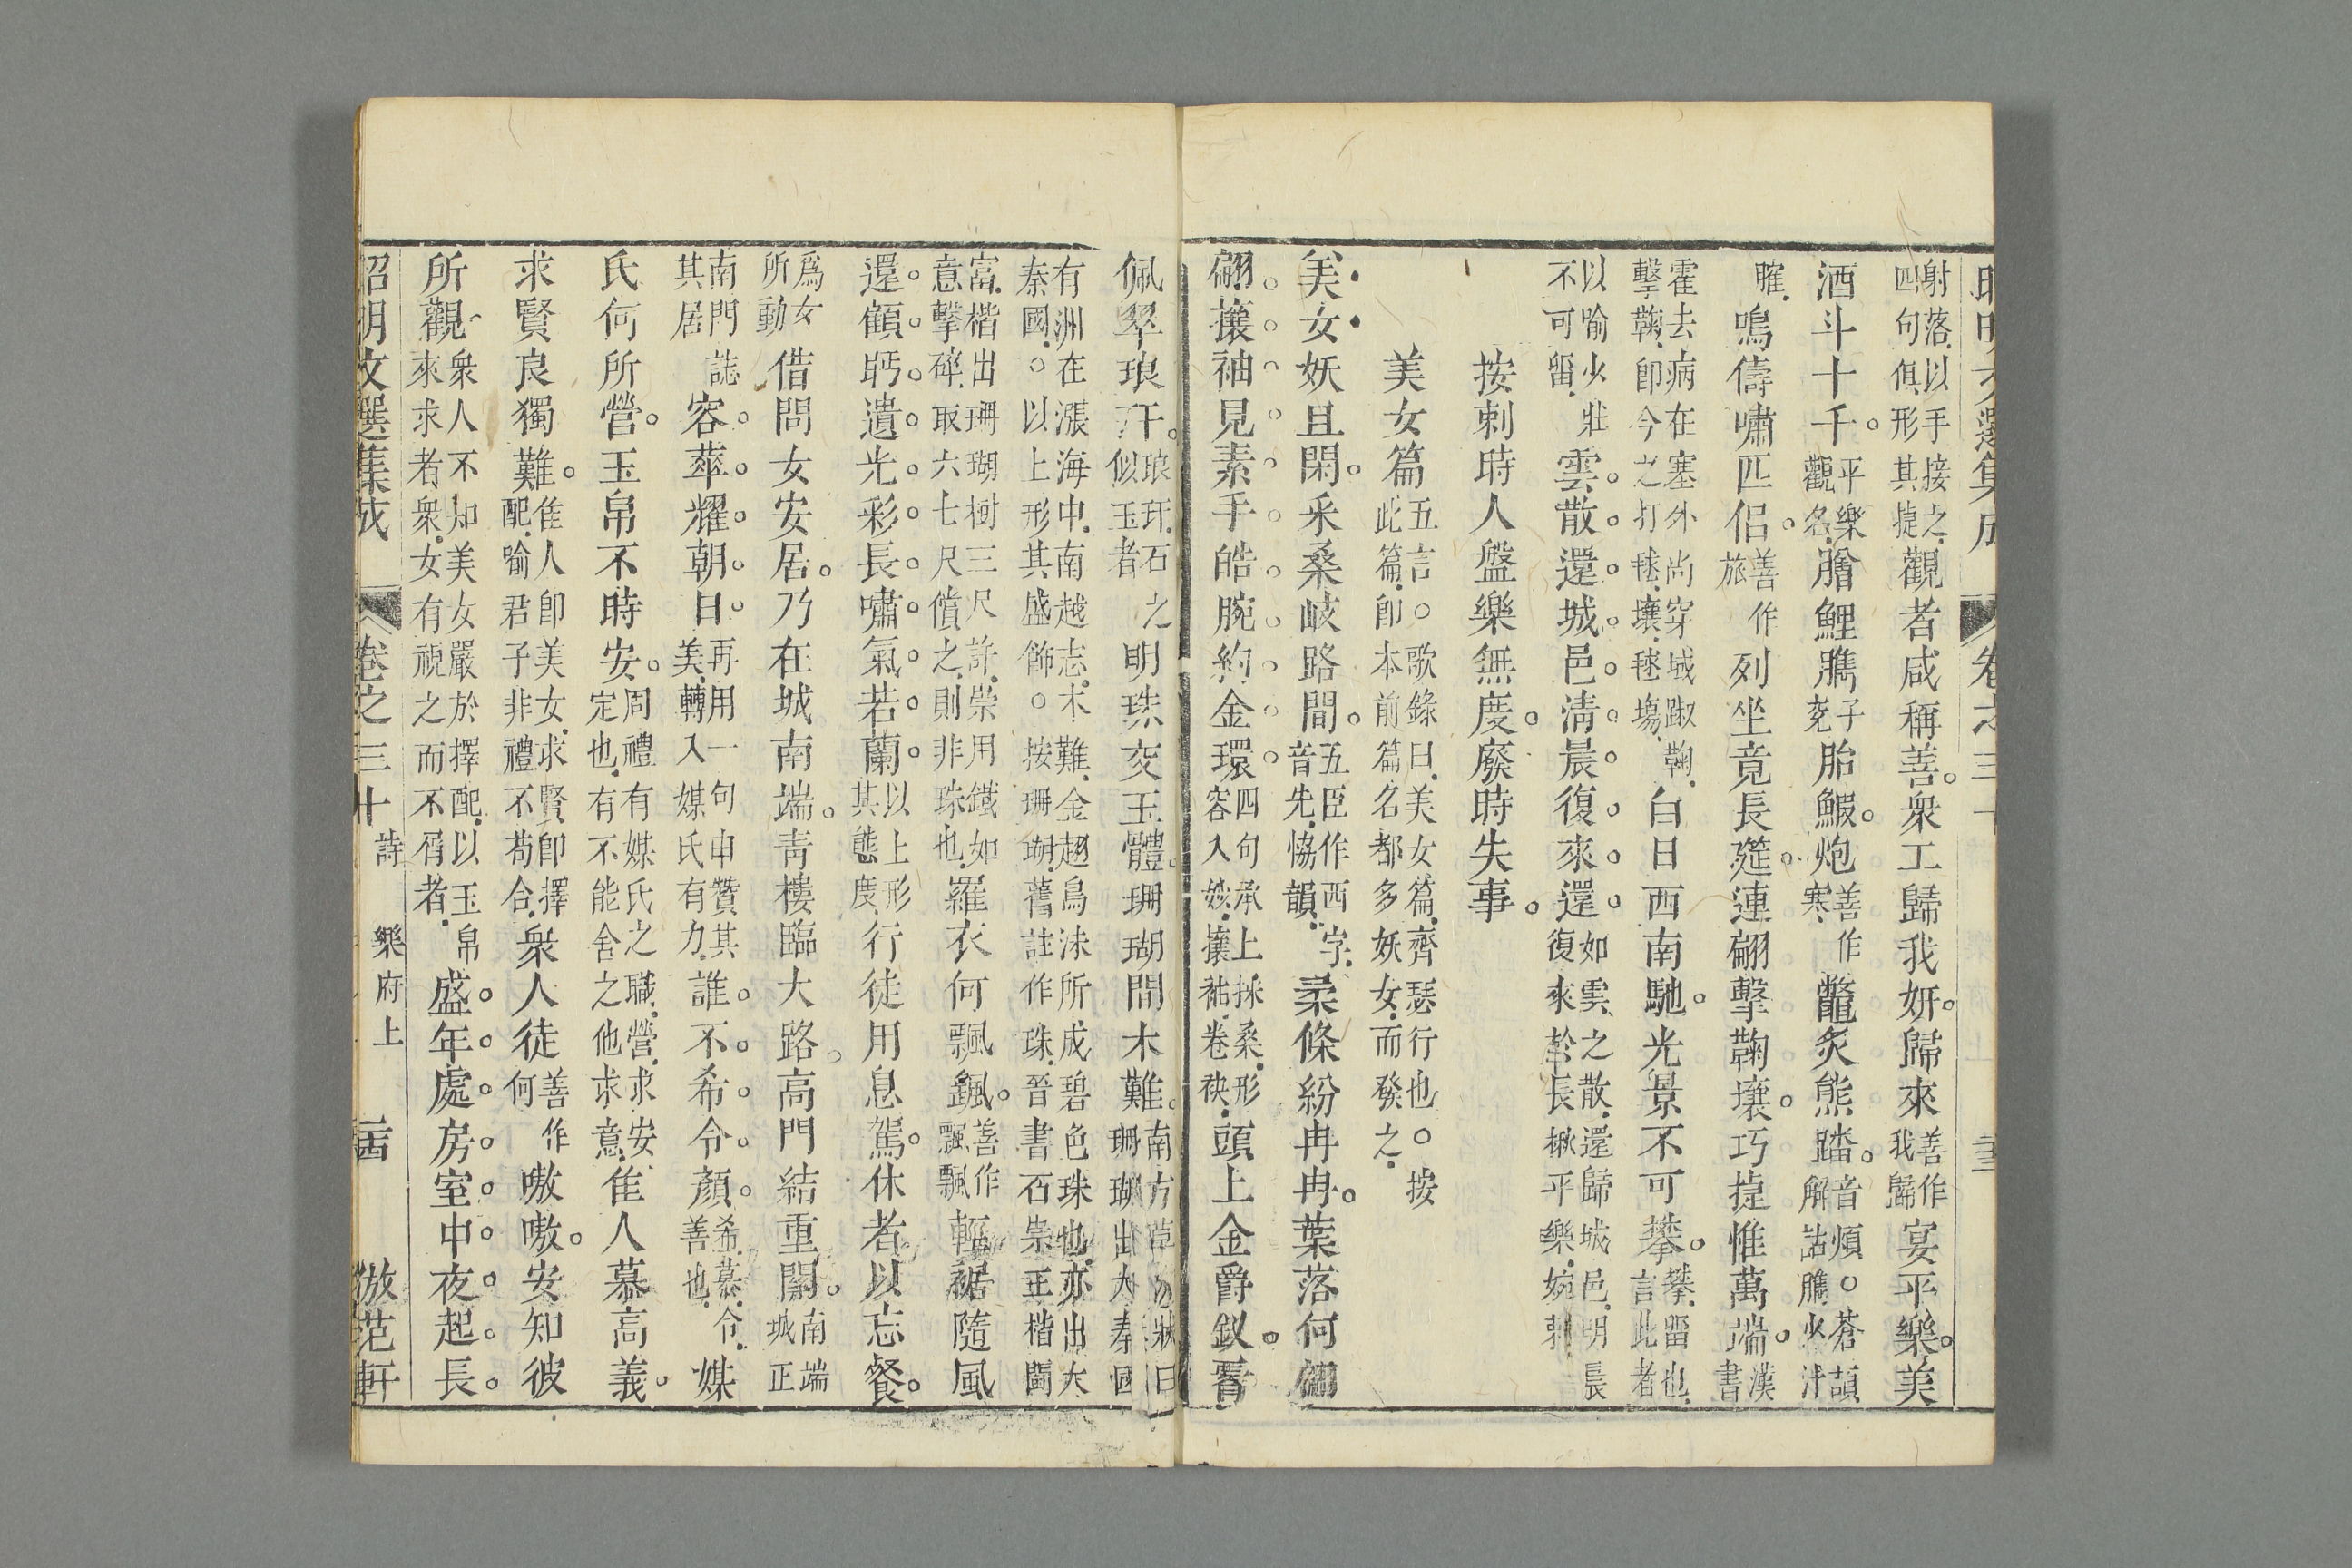 卷之三十
射落以手接之
四句俱形其捷觀者咸稱善衆工歸我妍歸來善作我歸宴平樂美
酒斗十千平樂觀名膾鯉臇子兖胎鰕炮善作寒鼈炙熊蹯音煩○蒼頡解詁臇少汁
臛鳴儔嘯匹侶善作旅列坐竟長筵連翩擊鞠壤巧捷惟萬端漢書
霍去病在塞外尚穿域蹴鞠
擊鞠卽今之打毬壤毬塲白日西南馳光景不可攀攀畱也言此者
以喻少壯不可畱雲散還城邑清晨復來還如雲之散還歸城邑明晨復來於長楸平樂婉刺
按刺時人盤樂無度廢時失事
美女篇五言○歌錄曰美女篇齊瑟行也○按此篇卽本前篇名都多妖女而發之
美女妖且閑采桑岐路間五臣作西字音先恊韻柔條紛冉冉葉落何翩
翩攘袖見素手皓腕約金環四句承上採桑形容入妙攘袖卷袂頭上金爵釵�
佩翠琅玕琅玕石之似玉者明珠交玉體珊瑚間木難珊瑚出大秦國
有洲在漲海中南越志木難金翅鳥沫所成碧色珠也亦出大
秦國○以上形其盛飾○按珊瑚舊註作珠晉書石崇王楷鬬
富楷出珊瑚樹三尺許崇用鐵如
意擊碎取六七尺償之則非珠也羅衣何飄颻善作飄飄輕裾隨風
還顧眄遺光彩長嘯氣若蘭以上形其態度行徒用息駕休者以忘餐
爲女所動借問女安居乃在城南端靑樓臨大路高門結重關南端城正
南門誌其居容華耀朝日再用一句申贊其美轉入媒氏有力誰不希令顏希慕令善也媒
氏何所營玉帛不時安周禮有媒氏之職營求安定也有不能舍之他求意隹人慕高義
求賢良獨難隹人卽美女求賢卽擇配喻君子非禮不苟合衆人徒善作何嗷嗷安知彼
所觀衆人不知美女嚴於擇配以玉帛來求者衆女有視之而不屑者盛年處房室中夜起長
昭明文選集成 卷之三十 詩 樂府上 倣范軒